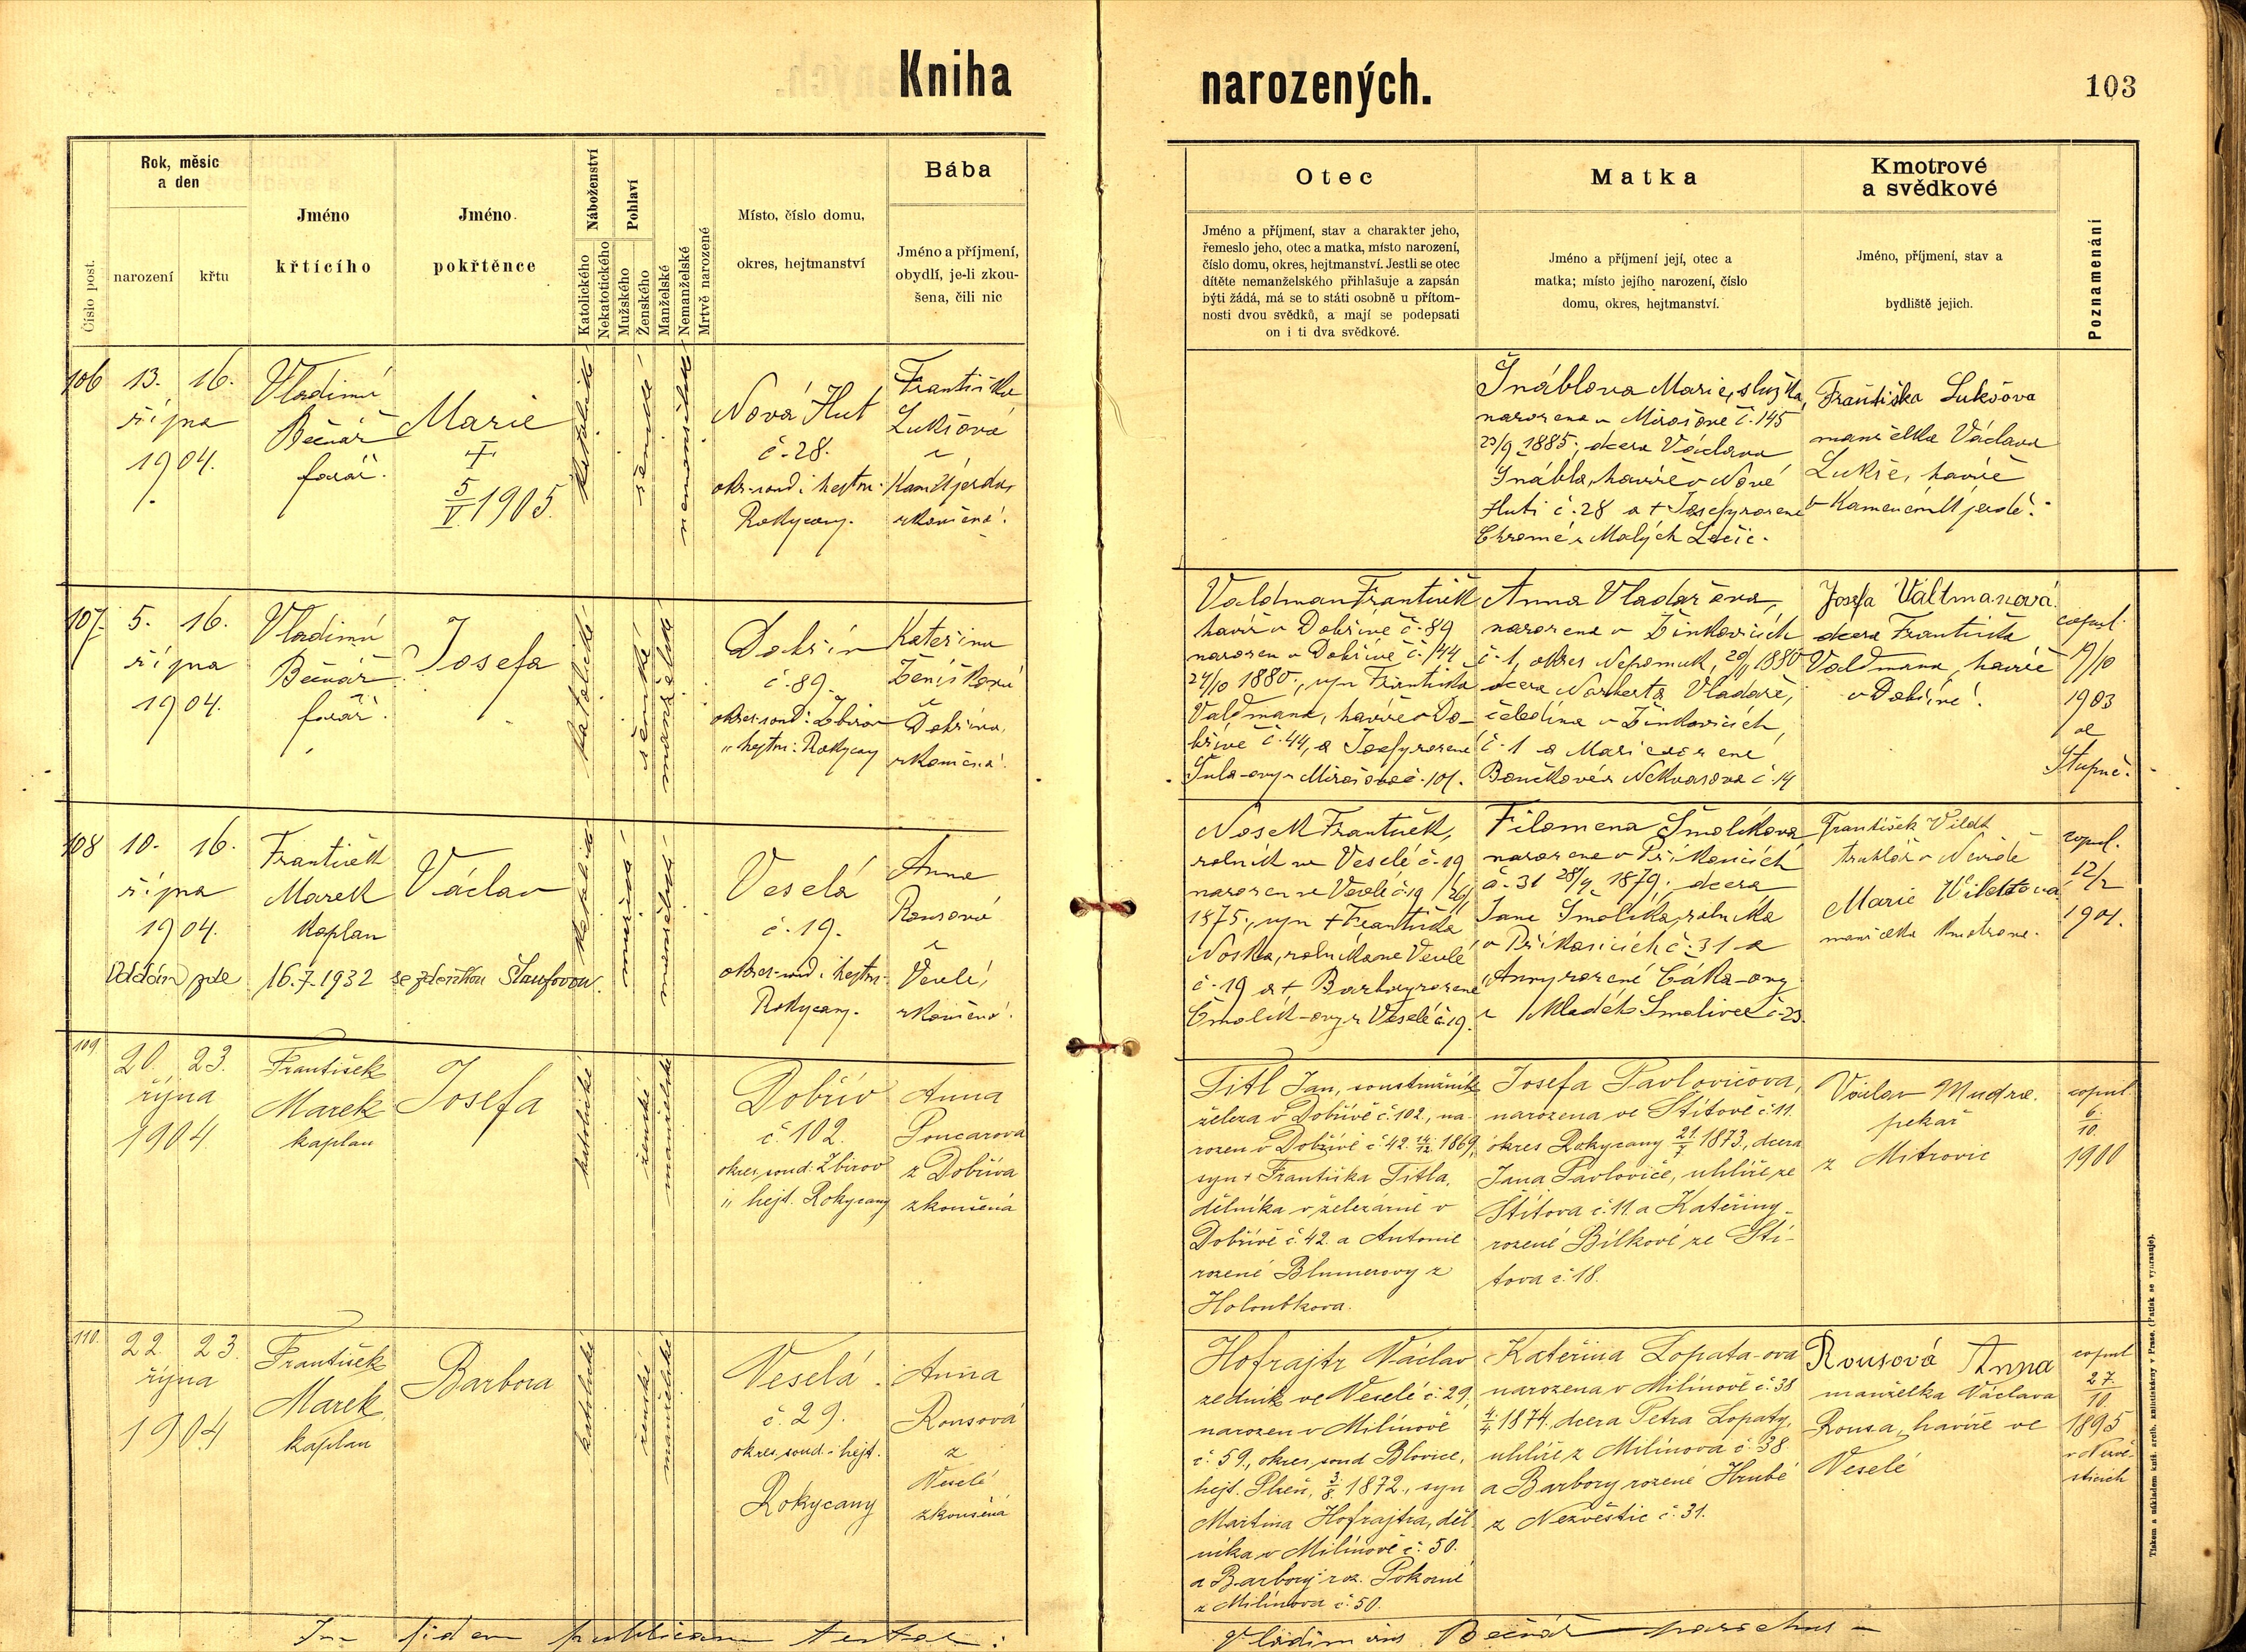 Kniha narozených.
103
Číslo post.
Rok, měsíc
a den
narození
křtu
Jméno
křtícího
Jméno
pokřtěnce
Náboženství
Katolického
Nekatolického
Pohlaví
Mužského
Ženského
Manželské
Nemanželské
Mrtvě narozené
Místo, číslo domu,
okres, hejtmanství
Bába
Jméno a příjmení,
obydlí, je-li zkou-
šena, čili nic
Otec
Jméno a příjmení, stav a charakter jeho,
řemeslo jeho, otec a matka, místo narození,
číslo domu, okres, hejtmanství. Jestli se otec
dítěte nemanželského přihlašuje a zapsán
býti žádá, má se to státi osobně u přítom-
nosti dvou svědků, a mají se podepsati
on i ti dva svědkové.
Matka
Jméno a příjmení její, otec a
matka; místo jejího narození, číslo
domu, okres, hejtmanství.
Kmotrové
a svědkové
Jméno, příjmení, stav a
bydliště jejich.
Poznamenání
106
13. 16.
října
1904.
Vladimír
Bečvář
farář.
Marie
†
5/V 1905.
katolické
ženské
nemanželské
Nová Huť
č. 28.
okr. soud i hejtm.
Rokycany.
Františka
Lukšová
z
zkoušená.
Marie, služka,
narozena v Mirošově č. 145
23/9 1885; dcera Václava
havíře v Nové
Huti č. 28 a † Josefy rozené
Chromé z Malých
Františka Lukšova
manželka Václava
Lukše, havíře
v Kameném Újezdě.
107.
5. 16.
října
1904.
Vladimír
Bečvář
farář.
Josefa
katolické
ženské
manželské
Dobřív
č. 89.
okres. soud: Zbiroh
" hejtm: Rokycany
Kateřina
Ženíšková
z
Dobříva,
zkoušená.
Valdman František
havíř v Dobřívě č. 89
narozen v Dobřívě č. 144
24/10 1880., syn Františka
Valdmana, havíře v Do-
břívě č. 44, a Josefy rozené
Šula-ovy z Mirošova č. 101.
Anna Vladařova,
narozena v Žinkovicích
č. 1, okres Nepomuk, 20/1 1880
dcera Norberta Vladaře,
čeledína v Žinkovicích,
č. 1 a Marie rozené
Boučkové z Nekvasova č. 14
Josefa Valtmanová.
dcera Františka
Valdmana, havíře
v Dobřívě.
copul.
19/10
1903
ve
108
10. 16.
října
1904.
František
Marek
Kaplan
Václav
Oddán zde 16.7.1932 se Zdeňkou Štaufovou.
katolické
mužské
manželské
Veselá
č. 19.
okres. soud i hejtm.
Rokycany.
Anna
Rousová
z
Veselé,
zkoušená.
Nosek František,
rolník ve Veselé č. 19
narozen ve Veselé č. 19
1875., syn † Františka
Noska, rolníka ve Veselé
č. 19 a † Barbory rozené
Smolík-ovy z Veselé č. 19.
Filomena Smolíkova
narozena v Příkosicích
č. 31 28/4 1879; dcera
Jana Smolíka, rolníka
v Příkosicích č. 31 a
Anny rozené Cáka-ovy
z Mladého Smolivce č. 23.
František Vildt
truhlář v Nevide
Marie Vildtová
manželka kmotrova.
copul.
12/2
1901.
109
20. 23.
října
1904.
František
Marek
kaplan
Josefa
katolické
ženské
manželské
Dobřív
č. 102.
okres. soud. Zbiroh
" hejt. Rokycany
Anna
Poncarova
z Dobříva
zkoušená
Titl Jan, soustružník
železa v Dobřívě č. 102., na-
rozen v Dobřívě č. 42. 14/12 1869,
syn † Františka Titla,
dělníka v železárně v
Dobřívě č. 42. a Antonie
rozené Blumerovy z
Holoubkova.
Josefa Pavlovičova,
narozena ve Štítově č. 11.
okres Rokycany 21/7 1873., dcera
Jana Pavloviče, uhlíře ze
Štítova č. 11. a Kateřiny
rozené Bílkové ze Ští-
tova č. 18.
Václav Mudra.
pekař
z Mitrovic
copul.
6/10.
1900
110.
22. 23.
října
1904
František
Marek
kaplan
Barbora
katolické
ženské
manželské
Veselá.
č. 29.
okres. soud. i hejt.
Rokycany
Anna
Rousová
z
Veselé
zkoušená
Hofrajtr Václav
zedník ve Veselé č. 29,
narozen v Milínově
č. 59., okres. soud Blovice,
hejt. Plzeň, 3/8 1872., syn
Martina Hofrajtra, děl-
níka v Milínově č. 50.
a Barbory roz. Pokorné
z Milínova č. 50.
Kateřina Lopata-ova
narozena v Milínově č. 38
4/4 1874. dcera Petra Lopaty,
uhlíře z Milínova č. 38
a Barbory rozené Hrubé
z Nezvěstic č. 31.
Rousová Anna
manželka Václava
Rousa, havíře ve
Veselé
copul
27/10.
1895
v Nezvě-
sticích
In fidem publicam testor:
Vladimirus Bečvář parochus
Tiskem a nákladem kníž. arcib. knihtiskárny v Praze. (Patisk se vyhrazuje).